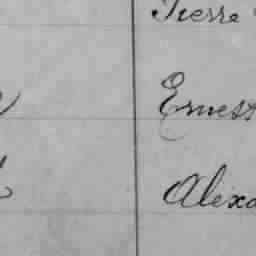 Pierre
Ernest
Alexa